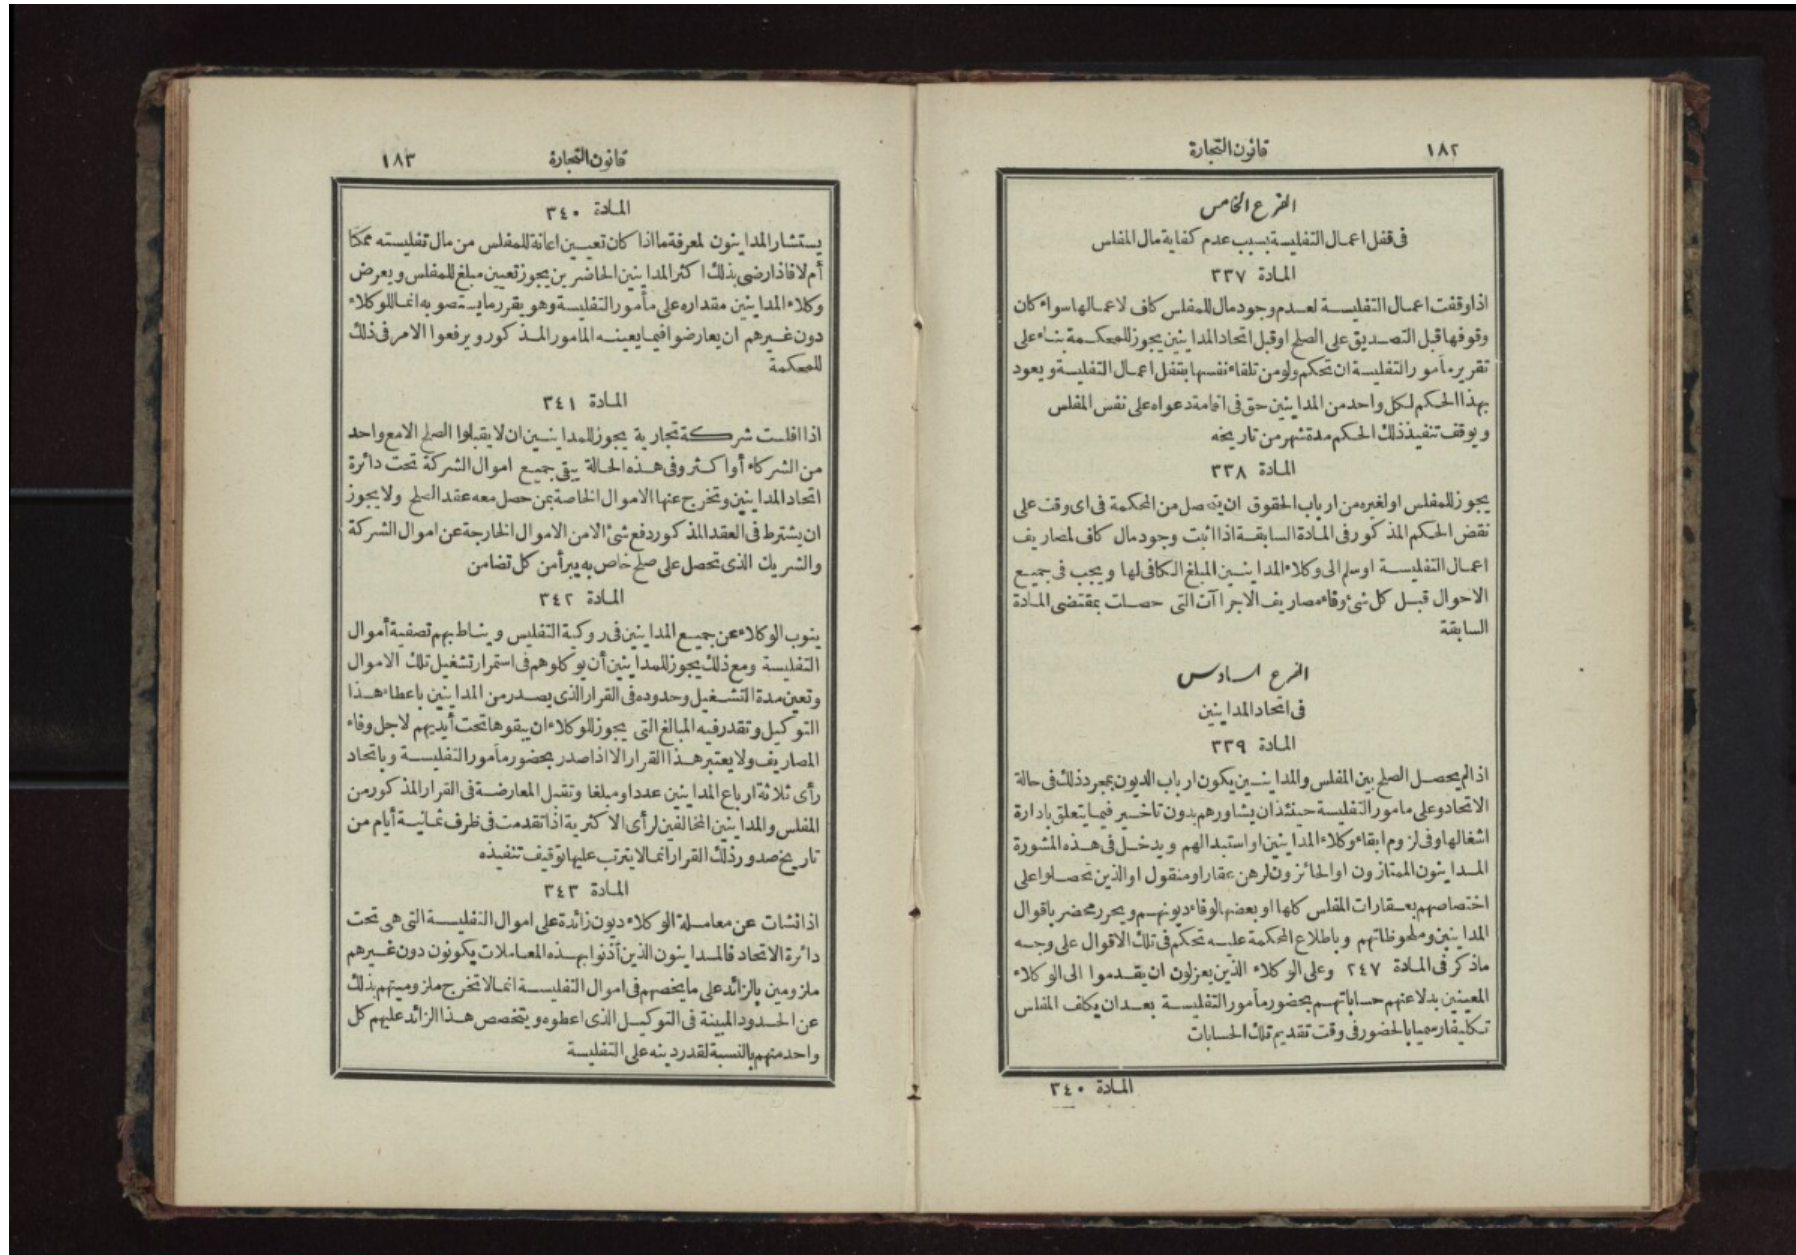 ١٨٢
قانون التجارة
الفرع الخامس
فى قفل اعمال التفليسة بسبب عدم كفاية مال المفلس
المادة ٣٣٧
اذا وقفت اعمال التفليسة لعدم وجود مال للمفلس كاف لاعمالها سواء كان
وقوفها قبل التصديق على الصلح او قبل اتحاد المداينين يجوز للمحكمة بناء على
تقرير مأمور التفليسة ان تحكم ولو من تلقاء نفسها بقفل اعمال التفليسة ويعود
بهذا الحكم لكل واحد من المداينين حق فى اقامة دعواه على نفس المفلس
ويوقف تنفيذ ذلك الحكم مدة شهر من تاريخه
المادة ٣٣٨
يجوز للمفلس او لغيره من ارباب الحقوق ان يتحصل من المحكمة فى اى وقت على
نقض الحكم المذكور فى المادة السابقة اذا اثبت وجود مال كاف لمصاريف
اعمال التفليسة او سلم الى وكلاء المداينين المبلغ الكافى لها ويجب فى جميع
الاحوال قبل كل شئ وفاء مصاريف الاجراآت التى حصلت بمقتضى المادة
السابقة
الفرع السادس
فى اتحاد المداينين
المادة ٣٣٩
اذا لم يحصل الصلح بين المفلس والمداينين يكون ارباب الديون بمجرد ذلك فى حالة
الاتحاد وعلى مامور التفليسة حينئذ ان يشاورهم بدون تاخير فيما يتعلق بادارة
اشغالها وفى لزوم ابقاء وكلاء المداينين او استبدالهم ويدخل فى هذه المشورة
المداينون الممتازون او الحائزون لرهن عقار او منقول او الذين تحصلوا على
اختصاصهم بعقارات المفلس كلها او بعضها لوفاء ديونهم ويحرر محضر باقوال
المداينين وملحوظاتهم وباطلاع المحكمة عليه تحكم فى تلك الاقوال على وجه
ما ذكر فى المادة ٢٤٧ وعلى الوكلاء الذين يعزلون ان يقدموا الى الوكلاء
المعينين بدلا عنهم حساباتهم بحضور مأمور التفليسة بعد ان يكلف المفلس
تكليفا رسميا بالحضور فى وقت تقديم تلك الحسابات
المادة ٣٤٠
قانون التجارة
١٨٣
المادة ٣٤٠
يستشار المداينون لمعرفة ما اذا كان تعيين اعانة للمفلس من مال تفليسته ممكنا
أم لا فاذا رضى بذلك اكثر المداينين الحاضرين يجوز تعيين مبلغ للمفلس ويعرض
وكلاء المداينين مقداره على مأمور التفليسة وهو يقرر ما يستصوبه انما للوكلاء
دون غيرهم ان يعارضوا فيما يعينه المامور المذكور ويرفعوا الامر فى ذلك
للمحكمة
المادة ٣٤١
اذا افلست شركة تجارية يجوز للمداينين ان لا يقبلوا الصلح الا مع واحد
من الشركاء أو اكثر وفى هذه الحالة يبقى جميع اموال الشركة تحت دائرة
اتحاد المداينين وتخرج عنها الاموال الخاصة بمن حصل معه عقد الصلح ولا يجوز
ان يشترط فى العقد المذكور دفع شئ الا من الاموال الخارجة عن اموال الشركة
والشريك الذى تحصل على صلح خاص به يبرأ من كل تضامن
المادة ٣٤٢
ينوب الوكلاء عن جميع المداينين فى روكية التفليس ويناط بهم تصفية أموال
التفليسة ومع ذلك يجوز للمداينين أن يوكلوهم فى استمرار تشغيل تلك الاموال
وتعين مدة التشغيل وحدوده فى القرار الذى يصدر من المداينين باعطاء هذا
التوكيل وتقدر فيه المبالغ التى يجوز للوكلاء ان يبقوها تحت أيديهم لاجل وفاء
المصاريف ولا يعتبر هذا القرار الا اذا صدر بحضور مأمور التفليسة وباتحاد
رأى ثلاثة ارباع المداينين عددا ومبلغا وتقبل المعارضة فى القرار المذكور من
المفلس والمداينين المخالفين لرأى الاكثرية اذا تقدمت فى ظرف ثمانية أيام من
تاريخ صدور ذلك القرار انما لا يترتب عليها توقيف تنفيذه
المادة ٣٤٣
اذا نشات عن معاملة الوكلاء ديون زائدة على اموال التفليسة التى هى تحت
دائرة الاتحاد فالمداينون الذين أذنوا بهذه المعاملات يكونون دون غيرهم
ملزومين بالزائد على ما يخصهم فى اموال التفليسة انما لا تخرج ملزوميتهم بذلك
عن الحدود المبينة فى التوكيل الذى اعطوه ويتخصص هذا الزائد عليهم كل
واحد منهم بالنسبة لقدر دينه على التفليسة